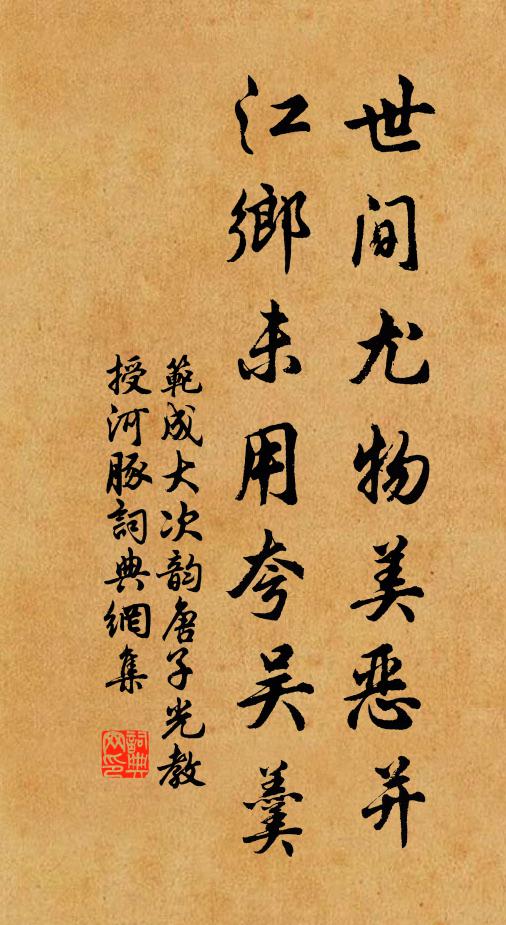 世间尤物美恶并
江鄉未用夸吴羹
範成大次韵唐子光教
授河豚詞典網集
詞典網印